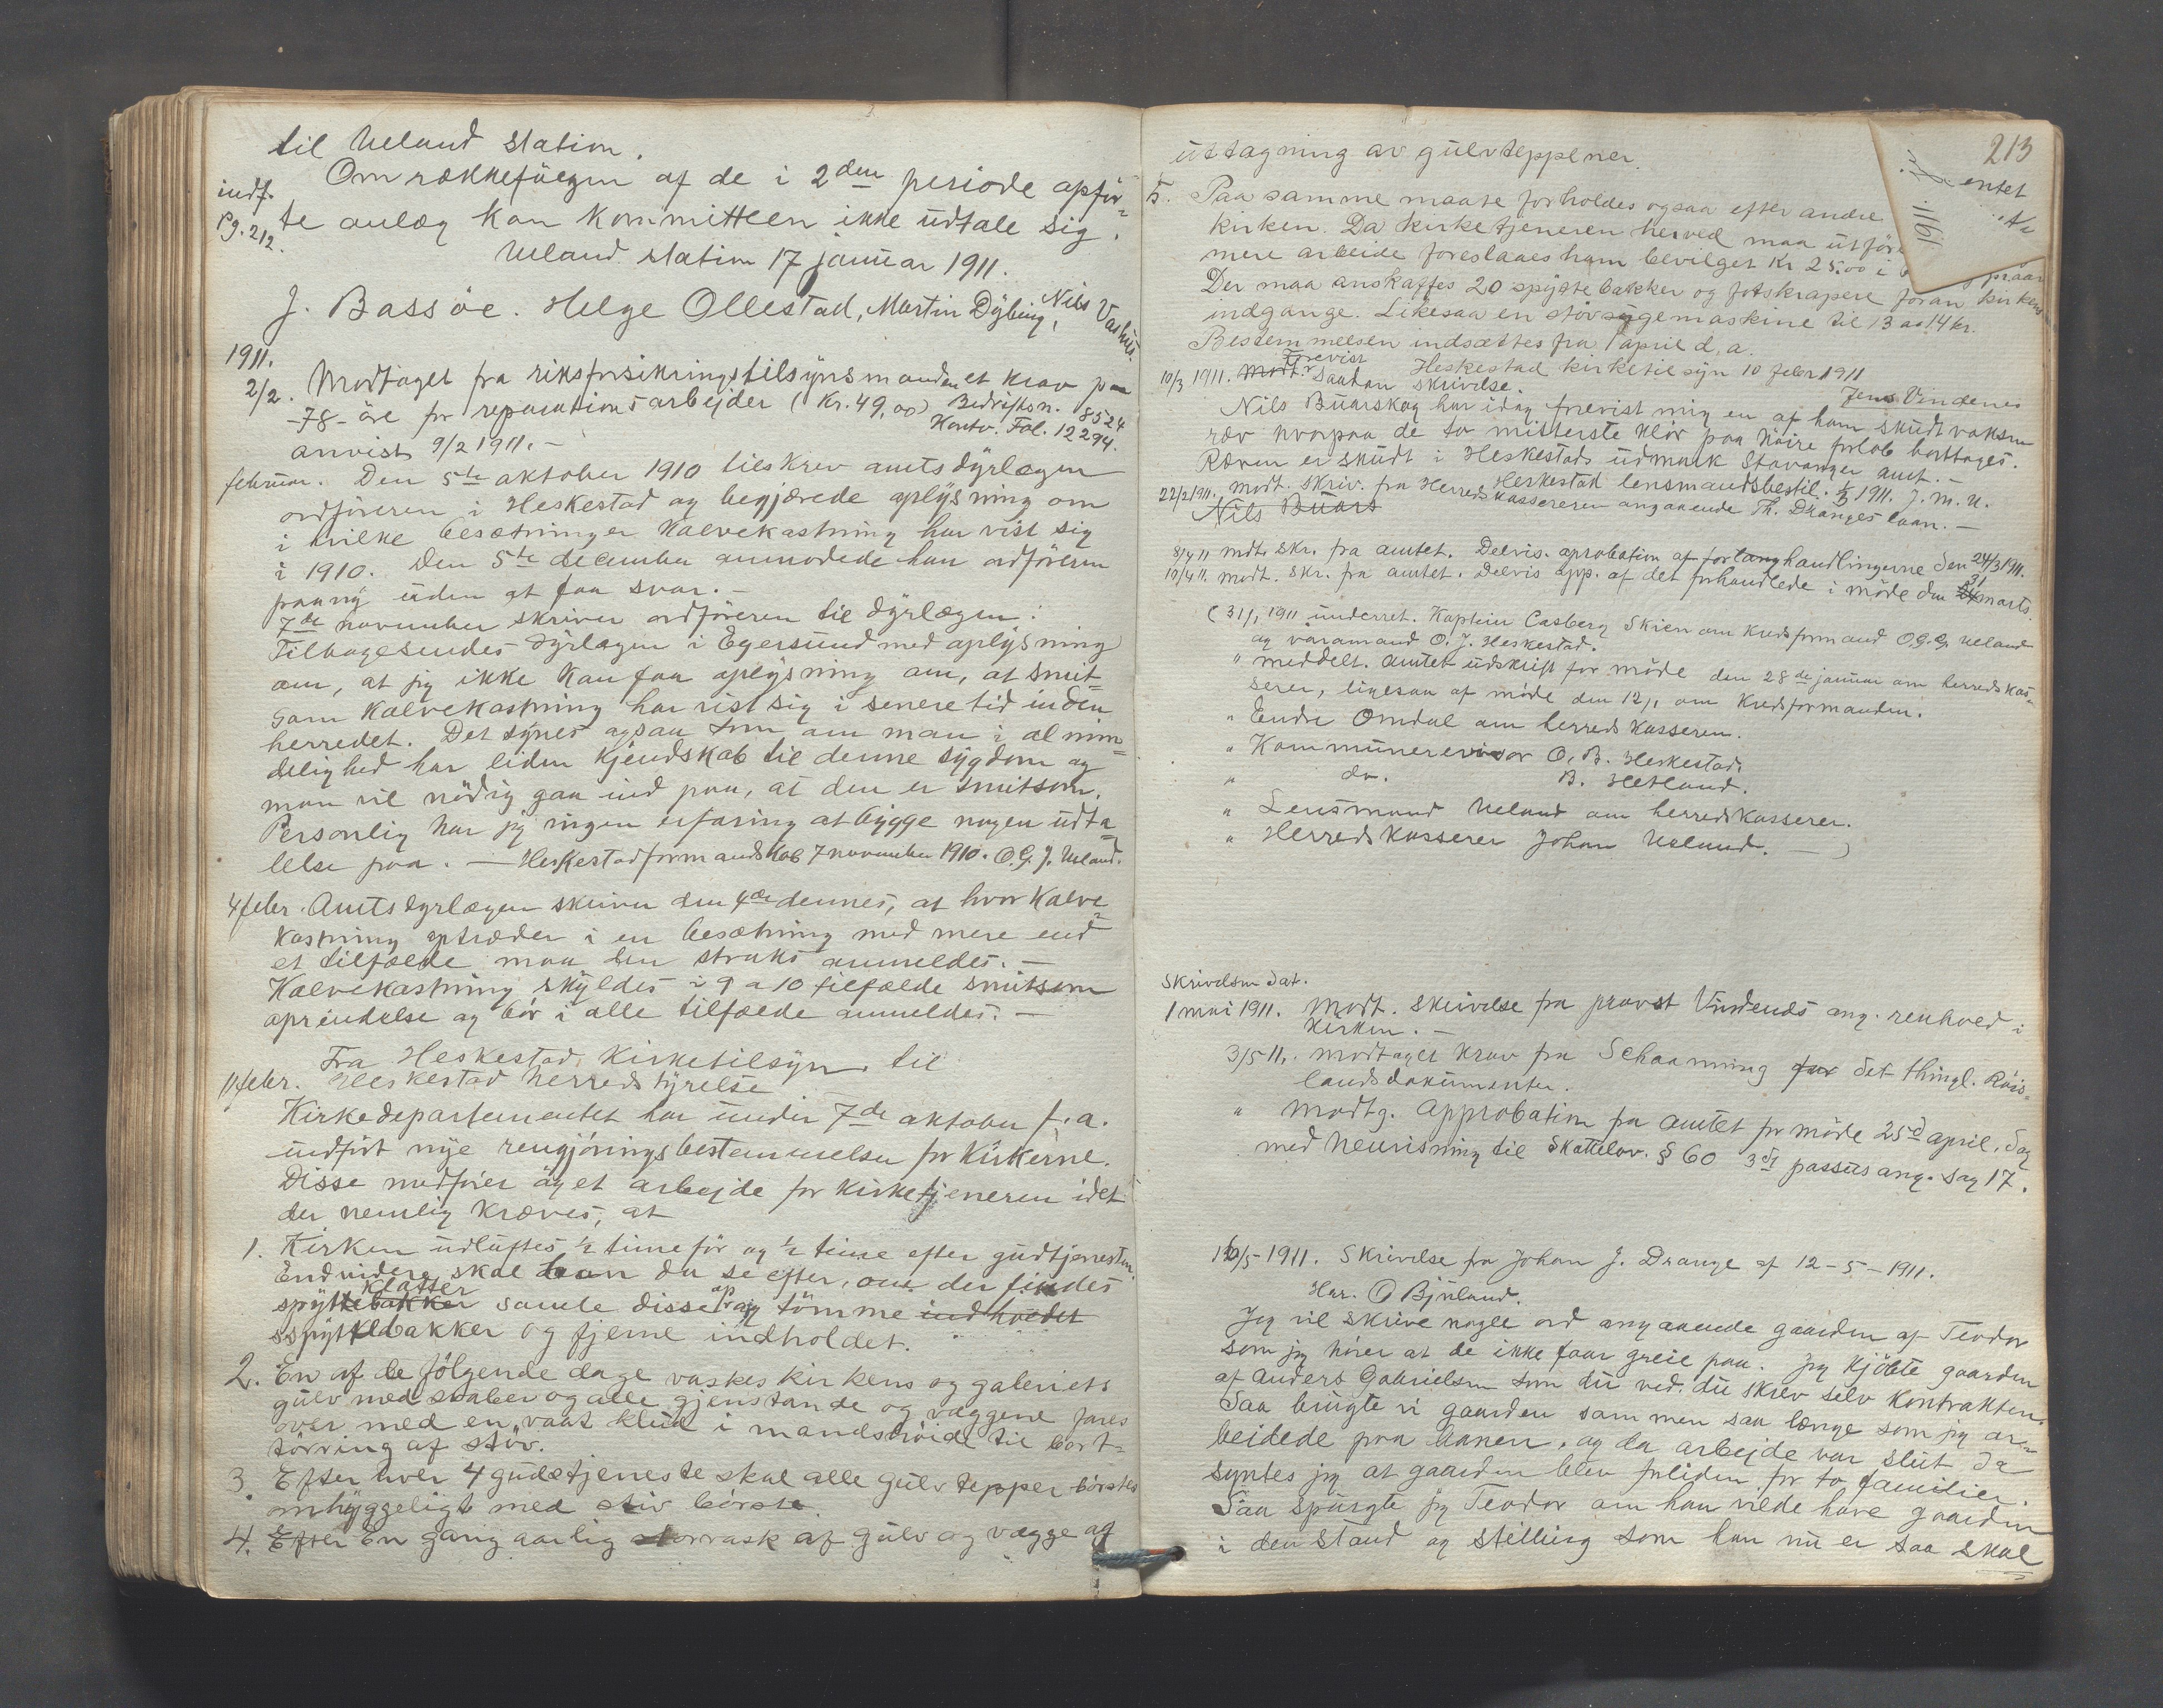 til Ueland station.
Om rækkefølgen af de i 2den periode opfør-
indf. te anlæg kan kommitteen ikke udtale sig.
Pg. 212.
Ueland station 17 januar 1911.
J. Bassøe. Helge Ollestad, Martin Dybing, Nils Vashus.
1911.
2/2. Modtaget fra riksforsikringstilsynsmanden et krav paa
-78- øre for reparationsarbejder (Kr. 49,00) Bedriftsn. 8524
Konto. Fol. 12294.
anvist 9/2 1911. –
februar. Den 5te oktober 1910 tilskrev amtsdyrlægen
ordføreren i Heskestad og begjærede oplysning om
i hvilke besætninger kalvekastning har vist sig
i 1910. Den 5te december anmodede han ordføreren
paany uden at faa svar. –
7de november skriver ordføreren til dyrlægen:
Tilbagesendes dyrlægen i Egersund med oplysning
om, at jeg ikke kan faa oplysning om, at smit-
som kalvekastning har vist sig i senere tid inden
herredet. Det synes ogsaa som om man i almin-
delighed har liden kjendskab til denne sygdom og
man vil nødig gaa ind paa, at den er smitsom.
Personlig har jeg ingen erfaring at bygge nogen udta-
lelse paa. — Heskestad formandskab 7 november 1910. O. G. J. Ueland.
4 febr. Amtsdyrlægen skriver den 4de dennes, at hvor kalve-
kastning optræder i en besætning med mere end
et tilfælde maa den straks anmeldes. –
Kalvekastning skyldes i 9 a 10 tilfælde smitsom
oprindelse og bør i alle tilfælde anmeldes. –
Fra Heskestad Kirketilsyn til
11 febr. Heskestad herredstyrelse
Kirkedepartementet har under 7de oktober f.a.
indført nye rengjøringsbestemmelser for kirkerne.
Disse medfører øget arbejde for kirketjeneren idet
der nemlig kræves, at
1. Kirken udluftes ½ time før og ½ time efter gudtjenesten.
Endvidere skal han da se efter, om der findes
spytteklatter bakker samle disse op og tømme indhodet
sspyttebakker og fjerne indholdet.
2. En af de følgende dage vaskes kirkens og galeriets
gulv med skaber og alle gjenstande og væggene fares
over med en vaat klud i mandshøide til bort-
tørring af støv.
3. Efter hver 4 gudstjeneste skal alle gulvtepper børstes
omhyggeligt med stiv børste
4. Efter En gang aarlig storvask af gulv og vægge og
213
entet
1911.
uttagning av gulvteppener.
5. Paa samme maate forholdes ogsaa efter andre
kirken. Da kirketjeneren herved maa utføre
mere arbeide foreslaaes ham bevilget Kr 25.00 i
Der maa anskaffes 20 spyttebakker og fotskrapere foran kirkens
indgange. Likesaa en støvsygemaskine til 13 a 14 kr.
Bestemmelsen indsættes fra 1 april d. a.
Heskestad kirketilsyn 10 febr 1911
Jens Vindenes
10/3 1911. Modt. Forevist saadan skrivelse.
Nils Buarskog har idag forevist mig en af ham skudt voksen
ræv hvorpaa de to midterste klør paa høire forlab borttages.
Ræven er skudt i Heskestads udmark Stavanger amt. –
Heskestad lensmandsbestil. 1/3 1911. J. M. U.
22/2 1911. Modt. skriv. fra Herredskassereren angaaende Th. Dranges laan. –
Nils Buars
8/4 11 mdt. skr. fra amtet. Delvis aprobation af forlang handlingerne den 24/3 1911.
10/4 11. modt. skr. fra amtet. Delvis app. af det forhandlede i møde den 24 31 marts
(31/1 1911 underret. Kaptein Casberg Skien om Kredsformand O. G. G. Ueland
og varamand O. J. Heskestad.
" meddelt. amtet udskrift for møde den 28de januar om herredskas-
serer, ligesaa af møde den 12/1 om Kredsformanden.
" Endre Omdal om herredskasseren.
" Kommunerevisor O. B. Heskestad.
" do. B. Hetland.
" Lensmand Ueland om herredskasserer.
" Herredskasserer Johan Ueland. — )
Skrivelsen dat.
1 mai 1911. Modt. skrivelse fra provst Vindenes ang. renhved i
kirken. –
3/5 11. modtaget krav fra Schaanning for det thingl. Røis-
landsdokumenter.
" Modtg. approbation fra amtet for møde 25d april, sag
med henvisning til Skattelov. § 60 3di passus ang. sag 17.
16/5-1911. Skrivelse fra Johan J. Drange af 12-5-1911.
Hr. O Bjuland.
Jeg vil skrive nogle ord angaaende gaarden af Teodor
som jeg hører at de ikke faar greie paa. Jeg kjøbte gaarden
af Anders Gabrielsen som du ved. du skrev selv kontrakten.
Saa brugte vi gaarden sammen saa længe som jeg ar-
beidede paa banen, og da arbejde var slut da
syntes jeg at gaarden blev forliden for to familier.
Saa spurgte jeg Teodor om han vilde have gaarden
i den stand og stilling som han nu er saa skal